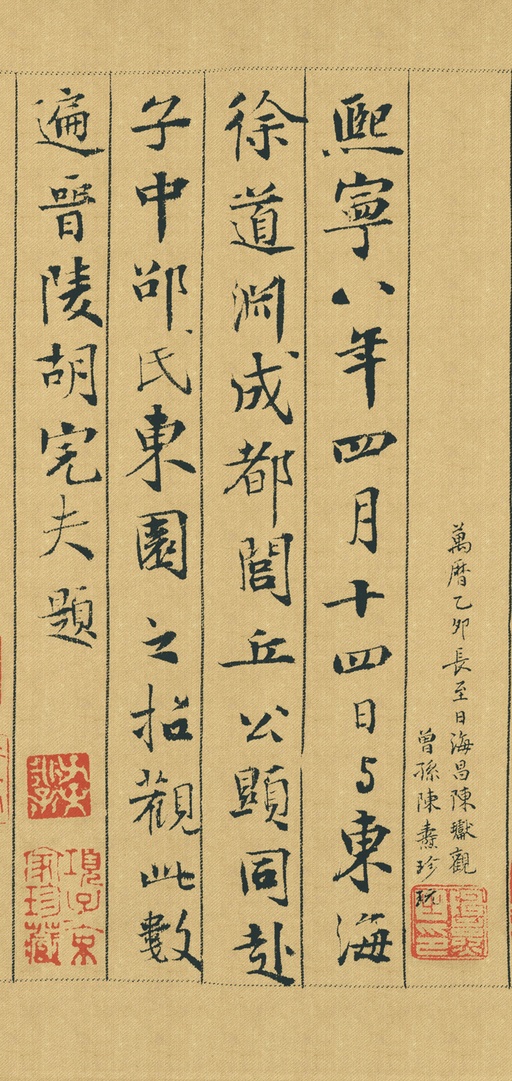 萬曆乙卯長至日海昌陳瓛觀
曾孫陳燾珍玩
熙寧八年四月十四日与東海
徐道淵成都閭丘公顯同赴
子中邵氏東園之招觀此數
遍晉陵胡完夫題
項子京
家珍藏